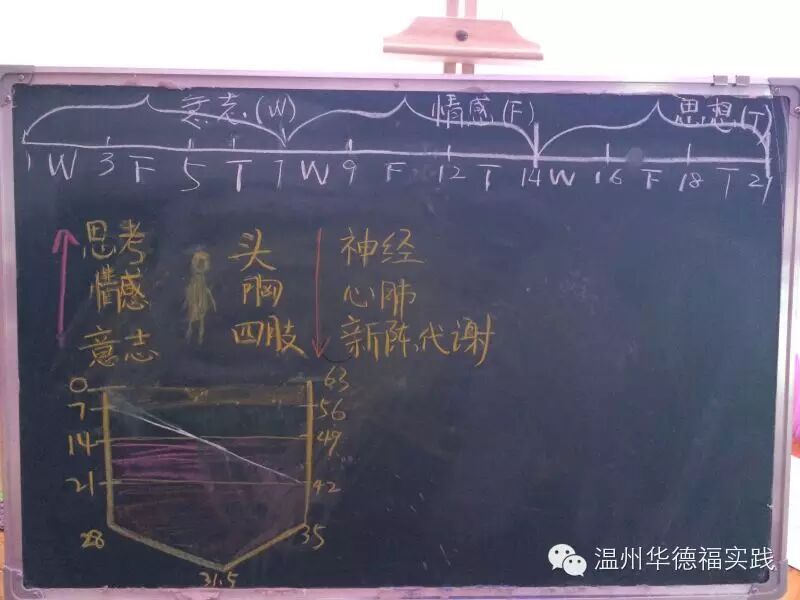 意志(W) 情感(F) 思想(T)
1 W 3 F 5 T 7 W 9 F 12 T 14 W 16 F 18 T 21
思考 头 神经
情感 胸 心肺
意志 四肢 新陈代谢
0 63
7 56
14 49
21 42
28 35
31.5
温州华德福实践